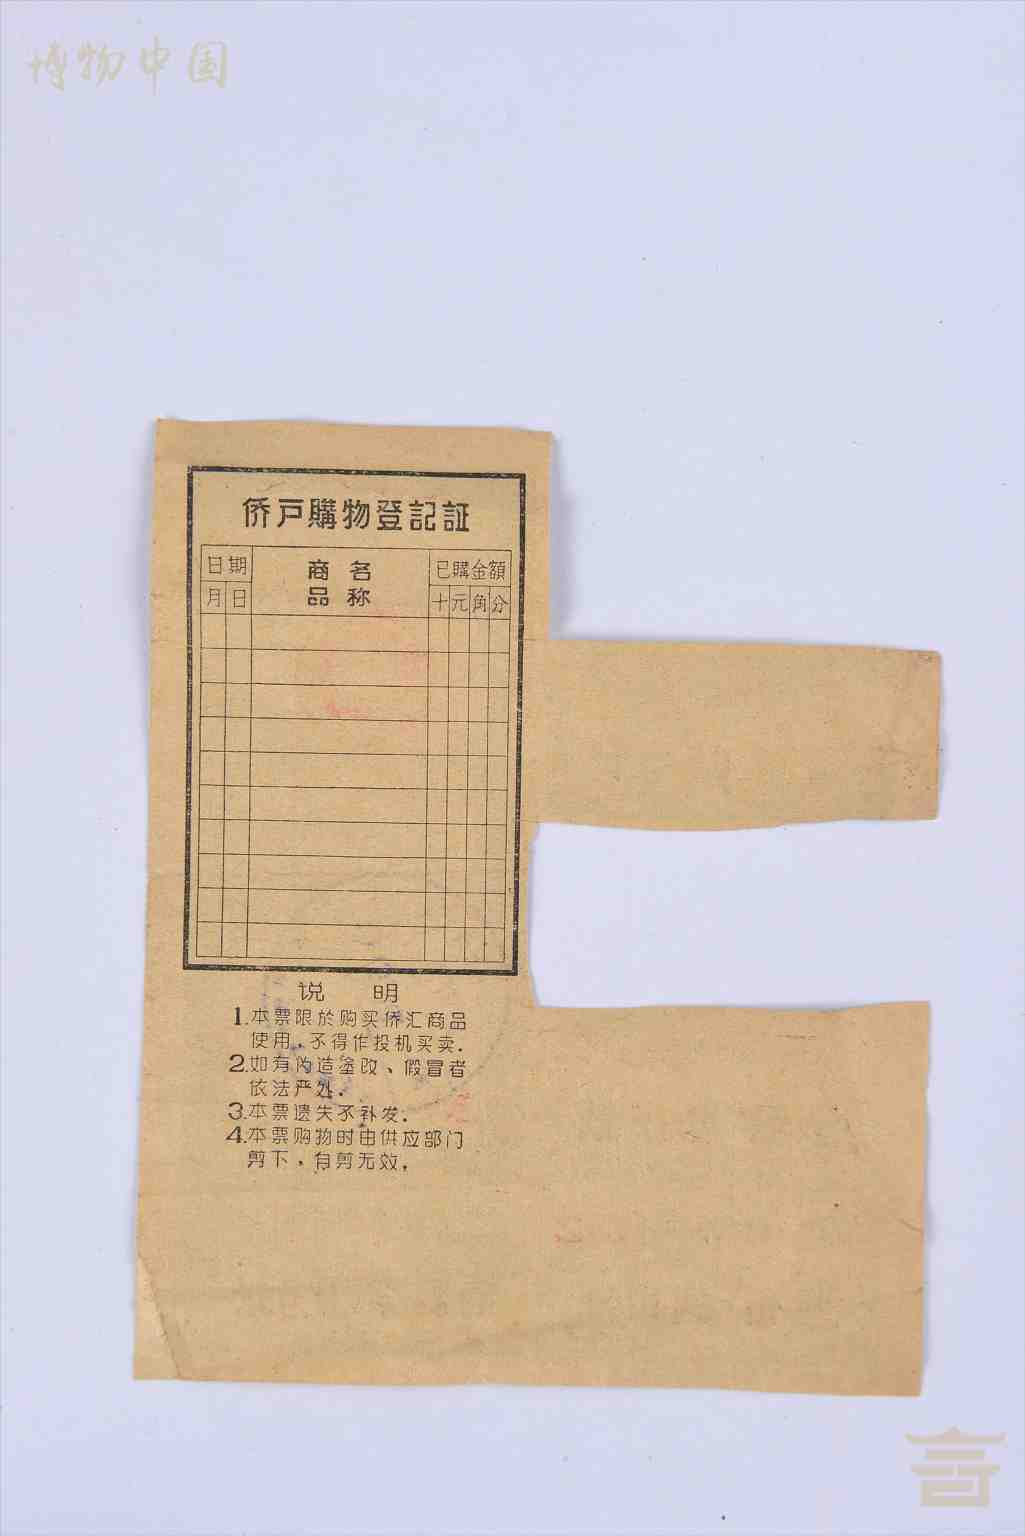 博物中国
侨戸購物登記証
日期
商名
已購金額
月日
品称
十元角分
说 明
1.本票限於购买侨汇商品
使用,不得作投机买卖.
2.如有伪造塗改、假冒者
依法严处.
3.本票遗失不补发.
4.本票购物时由供应部门
剪下,自剪无效,